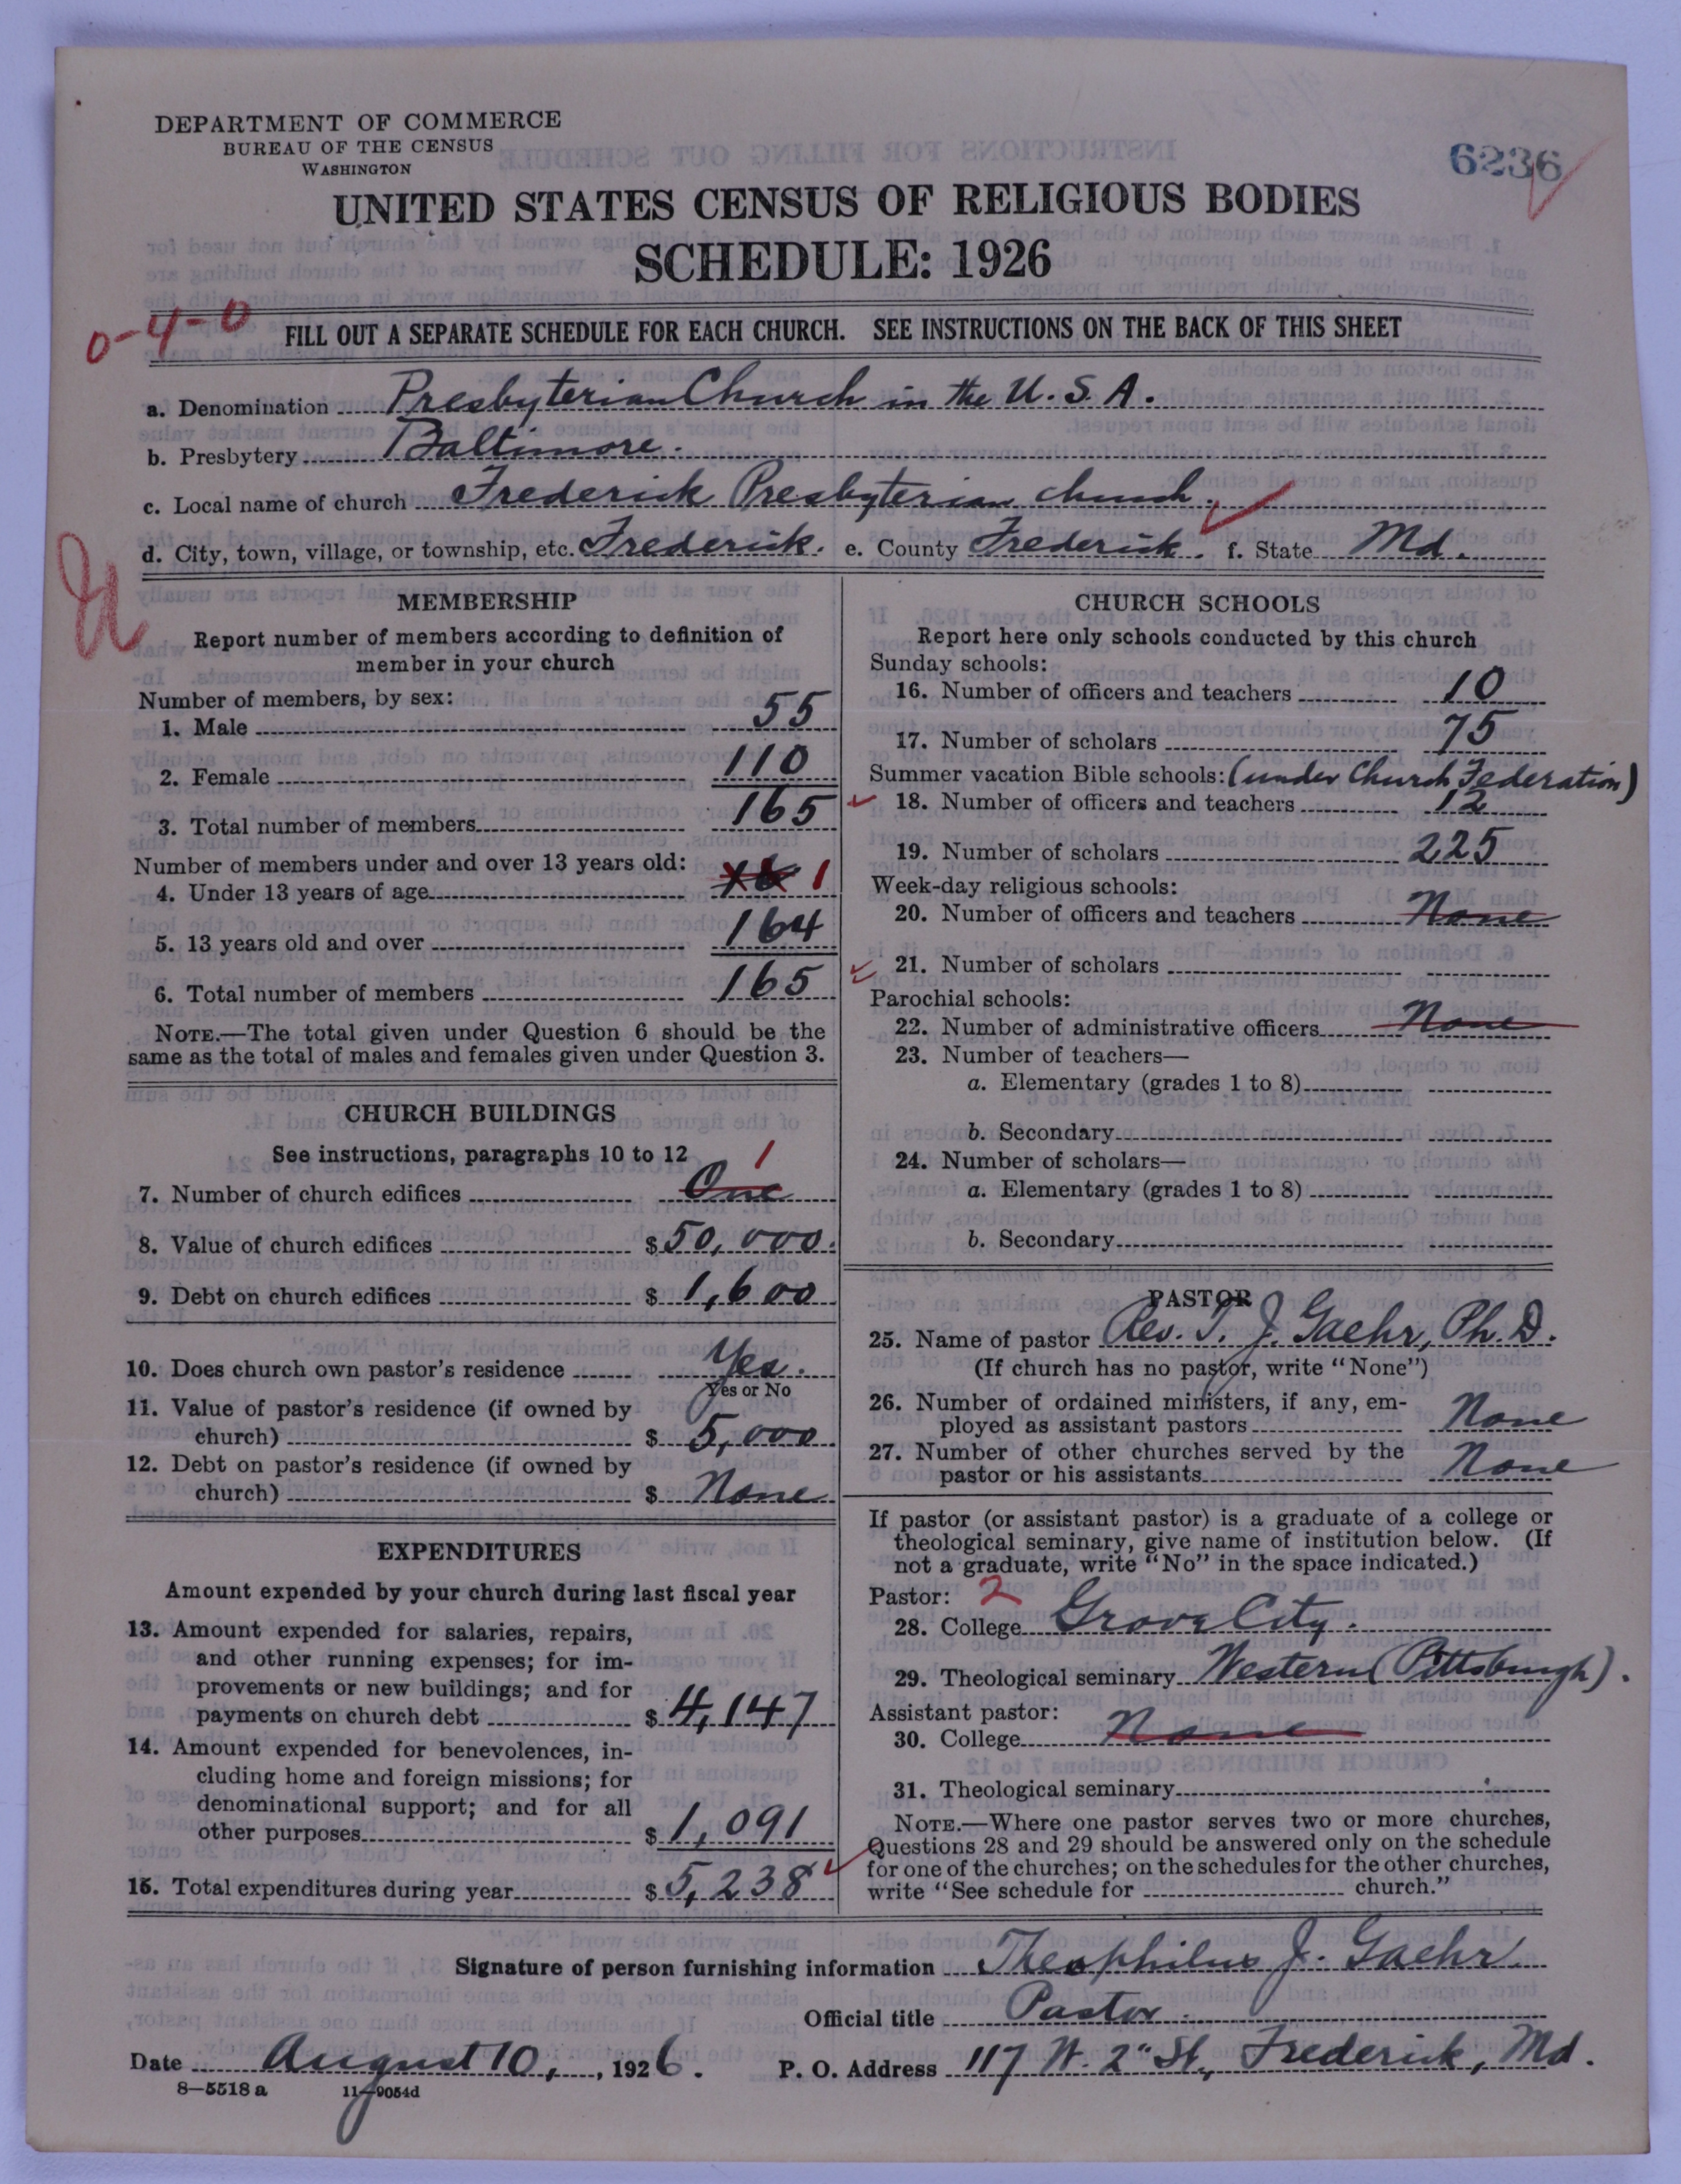 DEPARTMENT OF COMMERCE
BUREAU OF THE CENSUS
WASHINGTON
6236
UNITED STATES CENSUS OF RELIGIOUS BODIES
SCHEDULE: 1926
0-4-0
FILL OUT A SEPARATE SCHEDULE FOR EACH CHURCH. SEE INSTRUCTIONS ON THE BACK OF THIS SHEET
a. Denomination Presbyterian Church in the U.S.A.
b. Presbytery Baltimore.
c. Local name of church Frederick Presbyterian church.
d. City, town, village, or township, etc. Frederick. e. County Frederick. f. State Md.
MEMBERSHIP
Report number of members according to definition of
member in your church
Number of members, by sex:
1. Male 55
2. Female 110
3. Total number of members 165
Number of members under and over 13 years old:
4. Under 13 years of age 1
5. 13 years old and over 164
6. Total number of members 165
NOTE.—The total given under Question 6 should be the
same as the total of males and females given under Question 3.
CHURCH BUILDINGS
See instructions, paragraphs 10 to 12
1
7. Number of church edifices One
8. Value of church edifices $50,000.
9. Debt on church edifices $ 1,600
10. Does church own pastor's residence Yes.
Yes or No
11. Value of pastor's residence (if owned by
church) $ 5,000
12. Debt on pastor's residence (if owned by
church) $ None
EXPENDITURES
Amount expended by your church during last fiscal year
13. Amount expended for salaries, repairs,
and other running expenses; for im-
provements or new buildings; and for
payments on church debt $ 4,147
14. Amount expended for benevolences, in-
cluding home and foreign missions; for
denominational support; and for all
other purposes $ 1,091
15. Total expenditures during year $ 5,238
CHURCH SCHOOLS
Report here only schools conducted by this church
Sunday schools:
16. Number of officers and teachers 10
17. Number of scholars 75
Summer vacation Bible schools: (under Church Federation)
18. Number of officers and teachers 12
19. Number of scholars 225
Week-day religious schools:
20. Number of officers and teachers None
21. Number of scholars
Parochial schools:
22. Number of administrative officers None
23. Number of teachers—
a. Elementary (grades 1 to 8)
b. Secondary
24. Number of scholars—
a. Elementary (grades 1 to 8)
b. Secondary
PASTOR
25. Name of pastor Rev. T. J. Gaehr, Ph.D.
(If church has no pastor, write "None")
26. Number of ordained ministers, if any, em-
ployed as assistant pastors None
27. Number of other churches served by the
pastor or his assistants None
If pastor (or assistant pastor) is a graduate of a college or
theological seminary, give name of institution below. (If
not a graduate, write "No" in the space indicated.)
Pastor: 2
28. College Grove City.
29. Theological seminary Western (Pittsburgh).
Assistant pastor:
30. College None
31. Theological seminary
NOTE.—Where one pastor serves two or more churches,
Questions 28 and 29 should be answered only on the schedule
for one of the churches; on the schedules for the other churches,
write "See schedule for church."
Signature of person furnishing information Theophilus J. Gaehr
Official title Pastor.
Date August 10, 1926. P. O. Address 117 W. 2" St., Frederick, Md.
8—5518a 11—9054d